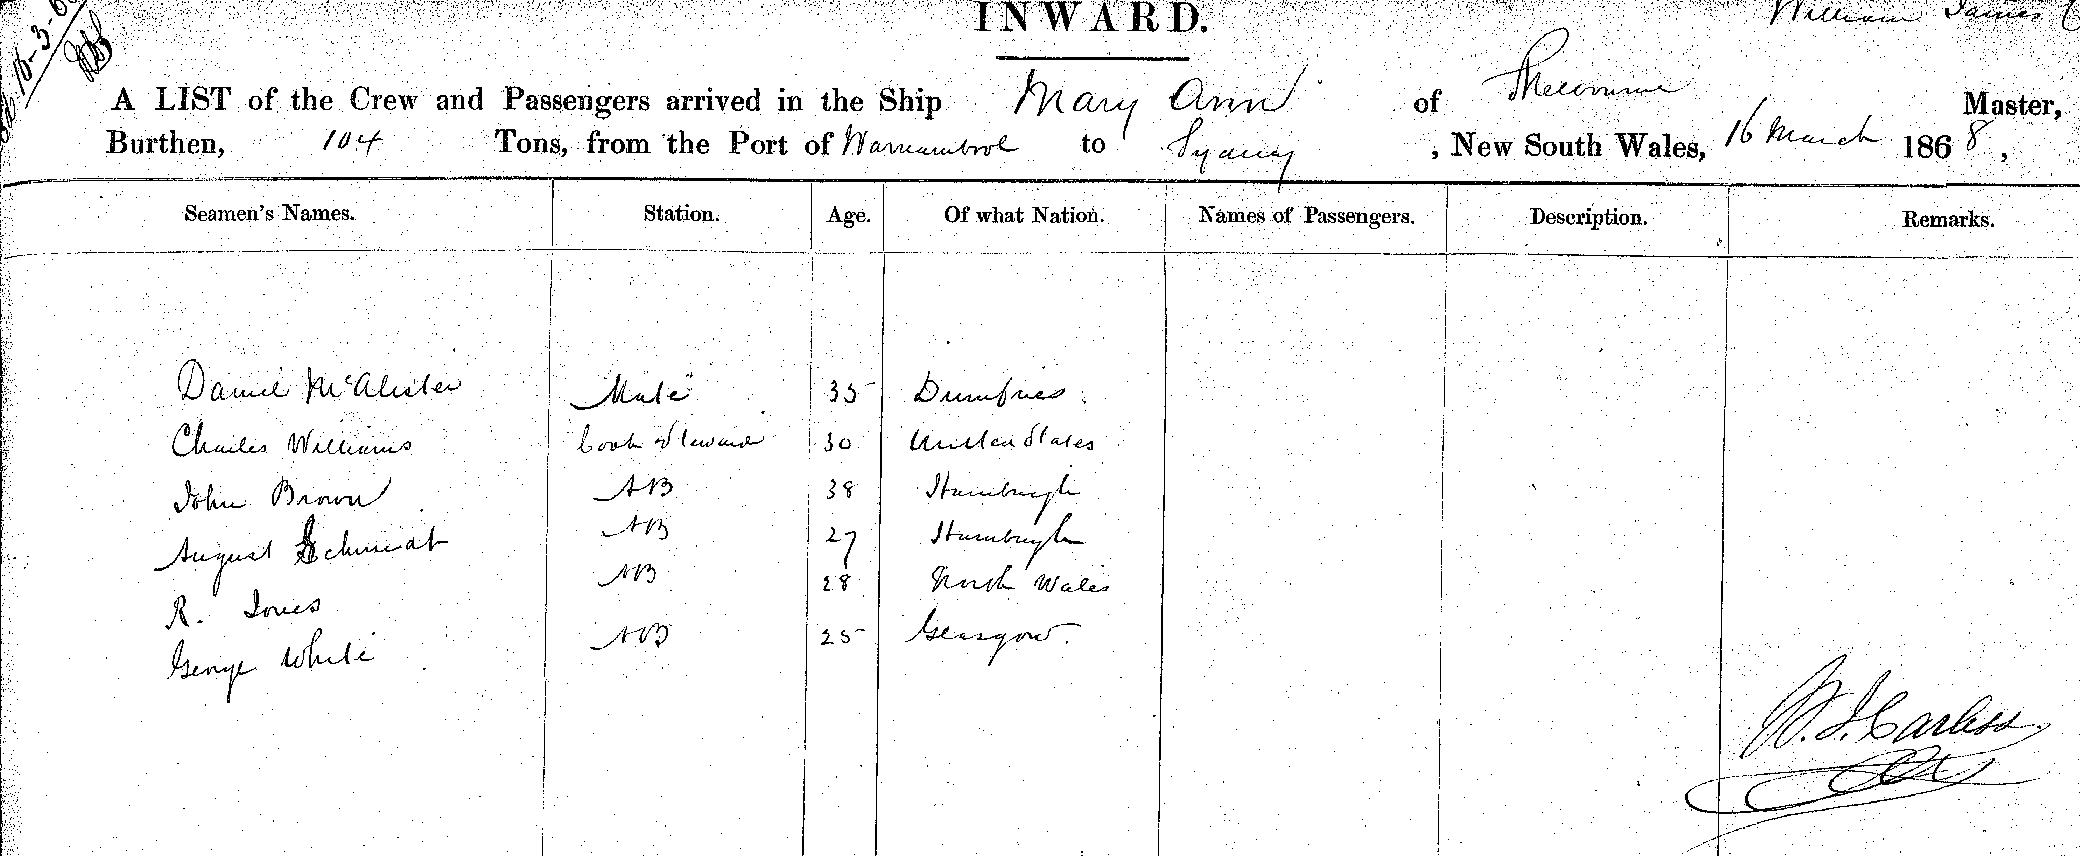 INWARD.
William James
16-3-6
A LIST of the Crew and Passengers arrived in the Ship Mary Ann of Melbourne Master,
Burthen, 104 Tons, from the Port of Warnambool to Sydney, New South Wales, 16 March 1868,
Seamen's Names. Station. Age. Of what Nation. Names of Passengers. Description. Remarks.
Daniel McAlister Mate 35 Dumfries.
Charles Williams Cook & Steward 30 United States
John Brown AB 38 Hamburgh
August Schmidt AB 27 Hamburgh
R. Jones AB 28 North Wales
George White AB 25 Glasgow.
W. J. Carless